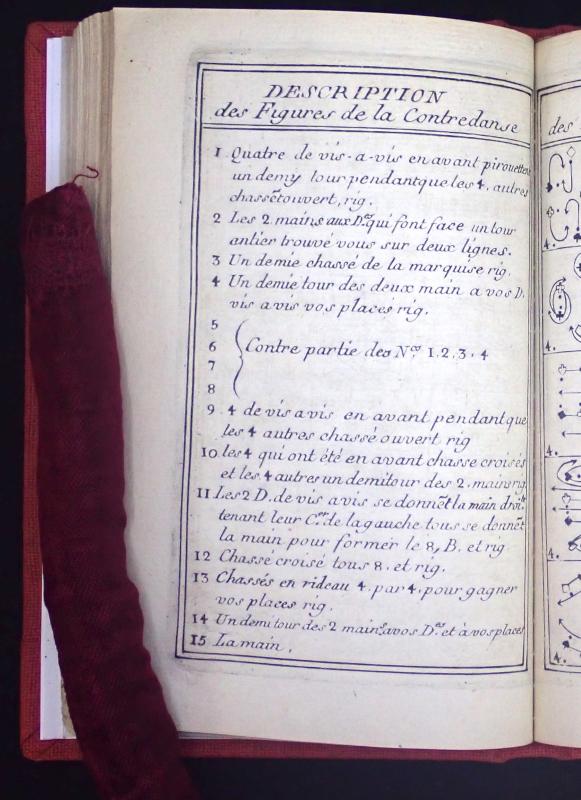 DESCRIPTION
des Figures de la Contredanse
1 Quatre de vis-a-vis en avant pirouettent
un demy tour pendantque les 4. autres
chassẽt ouvert, rig.
2 Les 2. mains aux D.es qui font face un tour
antier trouvé vous sur deux lignes.
3 Un demie chassé de la marquise rig.
4 Un demie tour des deux main a vos D.
vis a vis vos places rig.
5
6 Contre partie des N.os 1. 2. 3. 4
7
8
9 4 de vis a vis en avant pendant que
les 4 autres chassé ouvert rig
10 les 4 qui ont été en avant chasse croisés
et les 4 autres un demi tour des 2. mains rig
11 Les 2 D. de vis a vis se donnẽt la main droitte
tenant leur C.er de la gauche tous se donnẽt
la main pour former le 8, B. et rig
12 Chassé croisé tous 8. et rig.
13 Chassés en rideau 4. par 4. pour gagner
vos places rig.
14 Un demi tour des 2 mains a vos D.es et à vos places
15 La main.
des
4.
4.
4.
4.
4.